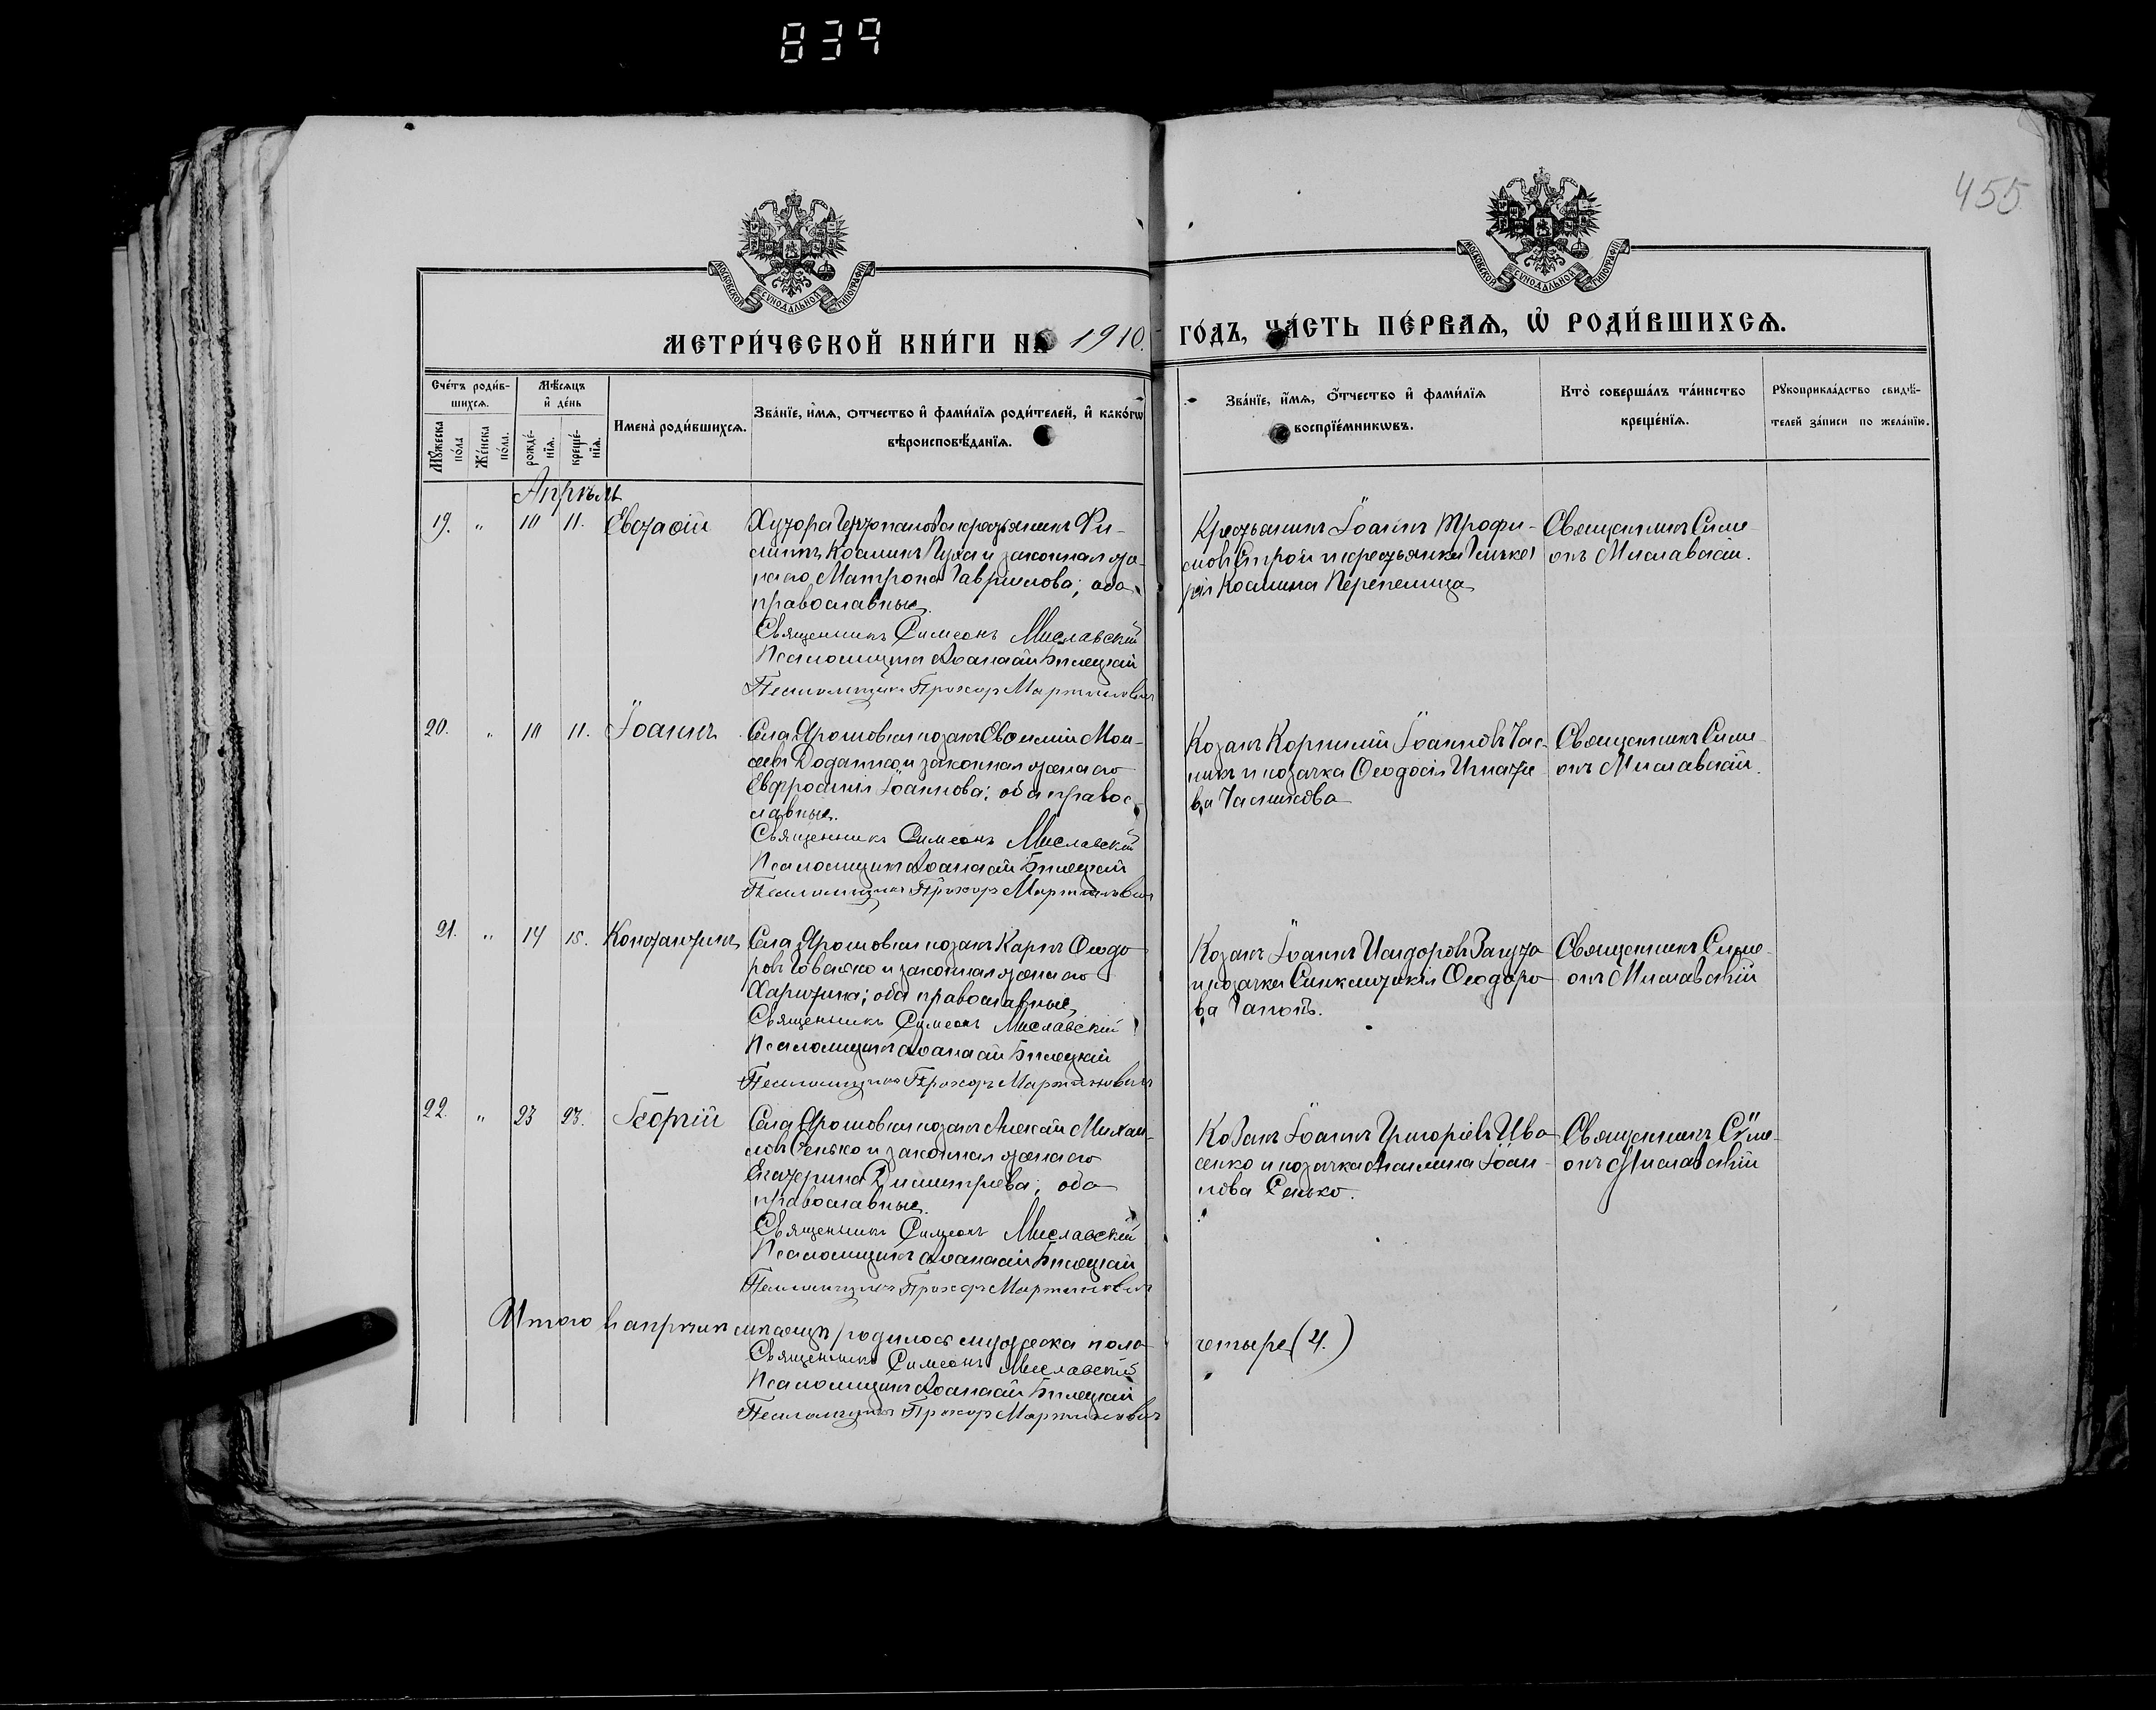 839
455
МОСКОВСКОЙ СУНОДАЛЬНОЙ ТИПОГРАФІИ
МОСКОВСКОЙ СУНОДАЛЬНОЙ ТИПОГРАФІИ
МЕТРИ́ЧЕСКОЙ КНИ́ГИ НА 1910.
ГО́ДЪ, ЧА́СТЬ ПЕ́РВАѦ, Ѡ҆ РОДИ́ВШИХСѦ.
Сче́тъ роди́в-
шихсѧ.
Мѣ́сѧцъ
и҆ де́нь
Мꙋ́жеска
по́ла
Же́нска
по́ла.
рожде́-
нїѧ.
креще́-
нїѧ.
Имена̀ роди́вшихсѧ.
Зва́нїе, и҆́мѧ, ѻ҆́тчество и҆ фами́лїѧ роди́телей, и҆ како́гѡ
вѣроисповѣ́данїѧ.
Зва́нїе, и҆́мѧ, ѻ҆́тчество и҆ фами́лїѧ
воспрїе́мникѡвъ.
Кто̀ соверша́лъ та́инство
креще́нїѧ.
Рꙋкоприкла́дство свидѣ́-
телей за́писи по жела́нїю.
Апрѣль
19. " 10 11. Евстафій
Хутора крестьянинъ Фи-
липпъ Косминъ Пуха и законная же-
на его Матрона Гаврилова; оба
православные.
Священникъ Симеонъ Миславскій
Псаломщикъ Аѳанасій Билецкій
Псаломщикъ Прохоръ Мартиновичъ
Крестьянинъ Іоаннъ Трофи-
мовъ и крестьянка Глике-
рія Космина Перепелица
Священникъ Симе-
онъ Миславскій.
20. " 10 11. Іоаннъ
Села Ярошовки козакъ Евѳимій Мои-
сеевъ и законная жена его
Евфросинія Іоаннова; оба правос-
лавные.
Священникъ Симеонъ Миславскій
Псаломщикъ Аѳанасій Билецкій
Псаломщикъ Прохоръ Мартиновичъ
Козакъ Корнилій Іоанновъ
и козачка Ѳеодосія Игнатіе-
ва
Священникъ Симе-
онъ Миславскій.
21. " 14 15. Константинъ
Села Ярошовки козакъ Карпъ Ѳеодо-
ровъ и законная жена его
Харитина; оба православные.
Священникъ Симеонъ Миславскій
Псаломщикъ Аѳанасій Билецкій
Псаломщикъ Прохоръ Мартиновичъ
Козакъ Іоаннъ Исидоровъ
и козачка Синклитикія Ѳеодоро-
ва Гапонъ.
Священникъ Симе-
онъ Миславскій
22. " 23 23. Георгій
Села Ярошовки козакъ Алексій Михаи-
ловъ Сенько и законная жена его
Екатерина Димитріева; оба
православные.
Священникъ Симеонъ Миславскій
Псаломщикъ Аѳанасій Билецкій
Псаломщикъ Прохоръ Мартиновичъ
Козакъ Іоаннъ Григоріевъ Ива-
сенко и козачка Іоан-
нова Сенько.
Священникъ Симе-
онъ Миславскій
Итого въ апрѣлѣ мѣсяцѣ родилось мужеска пола
четыре (4.)
Священникъ Симеонъ Миславскій
Псаломщикъ Аѳанасій Билецкій
Псаломщикъ Прохоръ Мартиновичъ